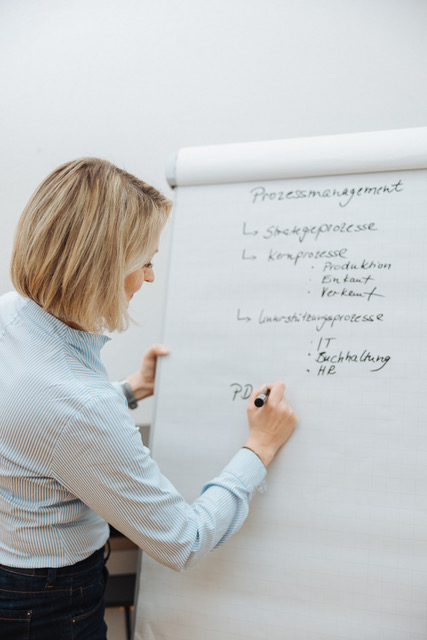 Prozessmanagement
↳ Strategieprozesse
↳ Kernprozesse
· Produktion
· Einkauf
· Verkauf
↳ Unterstützungsprozesse
· IT
· Buchhaltung
· HR
PD